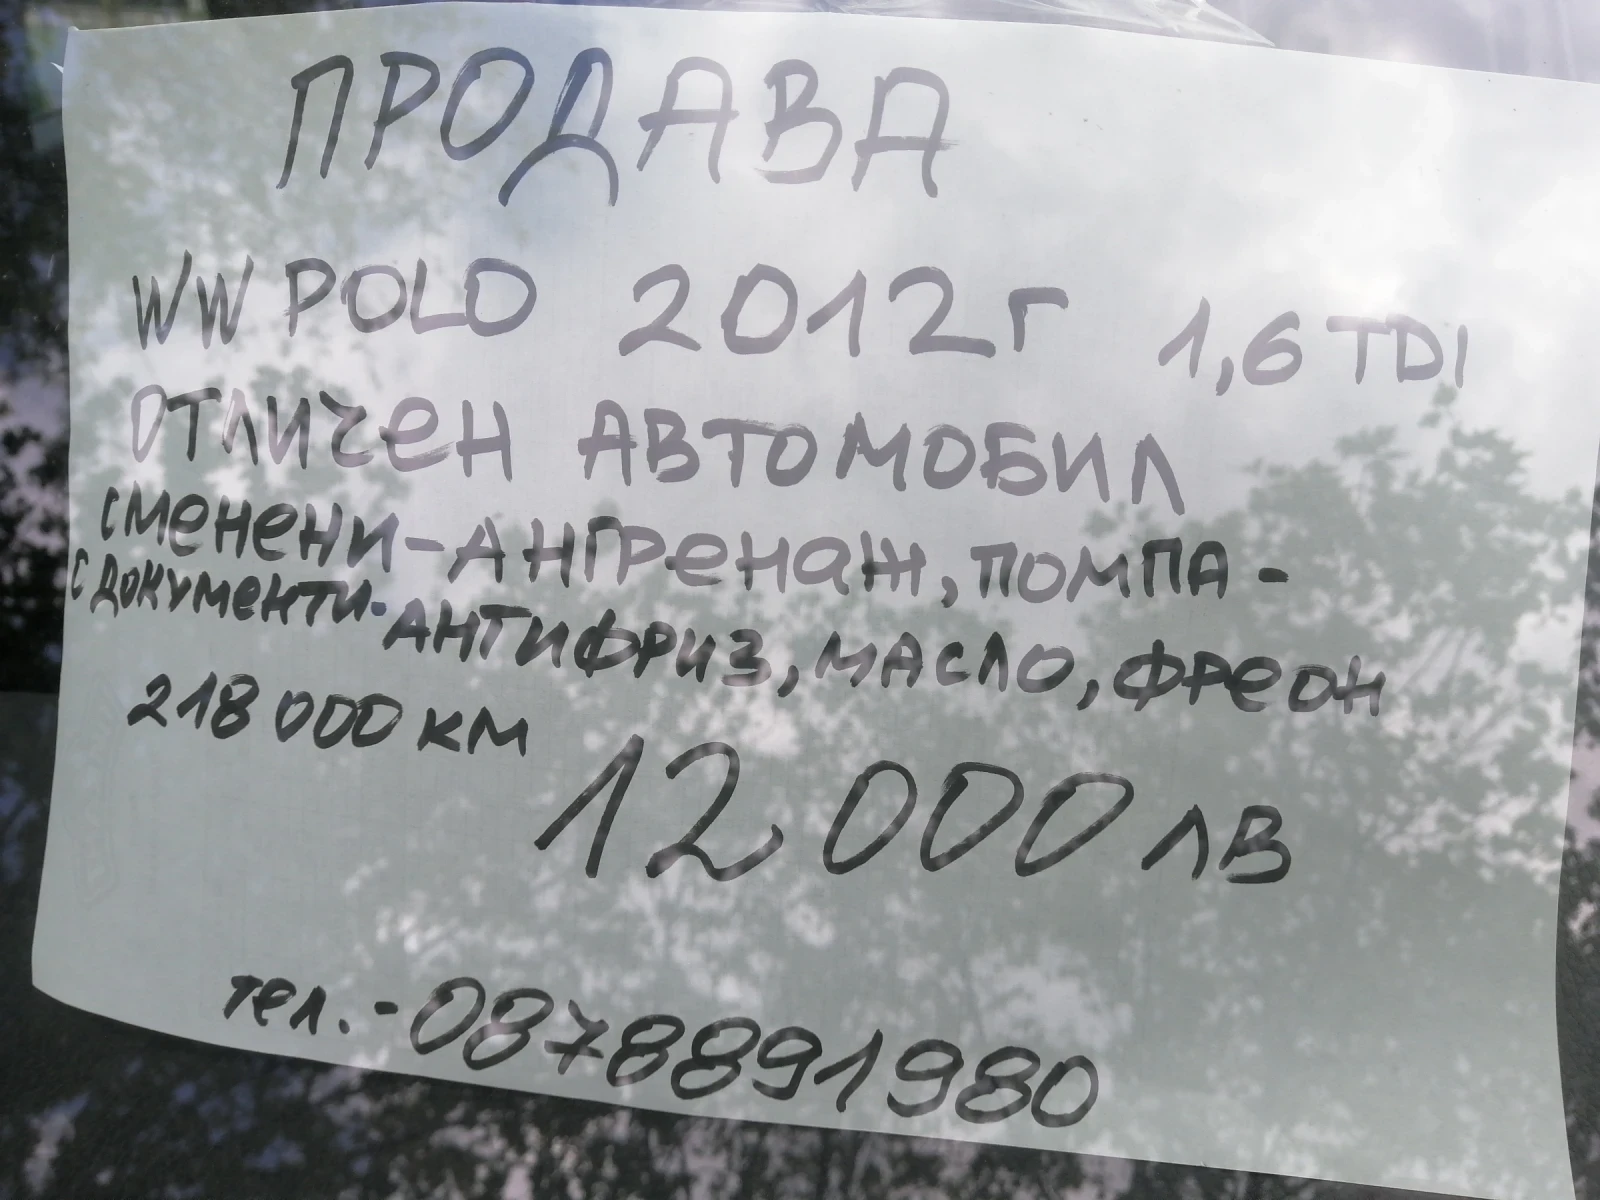 ПРОДАВА
WW POLO 2012г 1,6 TDI
ОТЛИЧЕН АВТОМОБИЛ
СМЕНЕНИ-АНГРЕНАЖ, ПОМПА-
С ДОКУМЕНТИ. АНТИФРИЗ, МАСЛО, ФРЕОН
218 000 КМ
12 000 ЛВ
тел.-0878891980